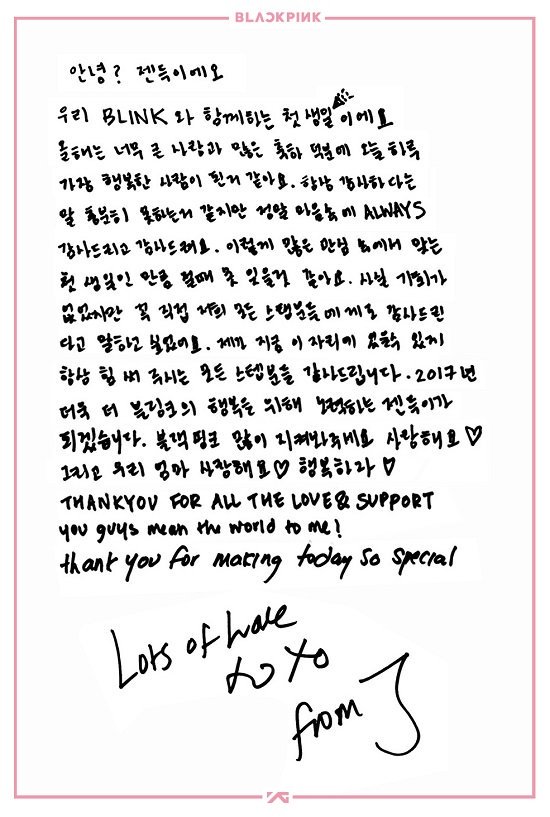 BLACKPINK
안녕? 젠득이에오
우리 BLINK 와 함께하는 첫 생일이에요
올해는 너무 큰 사랑과 많은 축하 덕분에 오늘 하루
가장 행복한 사람이 된거 같아요. 항상 감사하다는
말 충분히 못하는거 같지만 정말 마음속에 ALWAYS
감사드리고 감사드려요. 이렇게 많은 관심 속에서 맞는
첫 생일인 만큼 절때 못 잊을것 같아요. 사실 기회가
없었지만 꼭 직접 저희 모든 스탭분들에게도 감사드린
다고 말하고 싶었어요. 제가 지금 이 자리에 있을수 있게
항상 힘 써 주시는 모든 스텝분들 감사드립니다. 2017년
더욱 더 블링크의 행복을 위해 노력하는 젠득이가
되겠습니다. 블랙핑크 많이 지켜봐주세요 사랑해요♡
그리고 우리 엄마 사랑해요♡ 행복하자 ♡
THANKYOU FOR ALL THE LOVE & SUPPORT
you guys mean the world to me!
thank you for making today so special
Lots of Love
to Yo
from J
YG